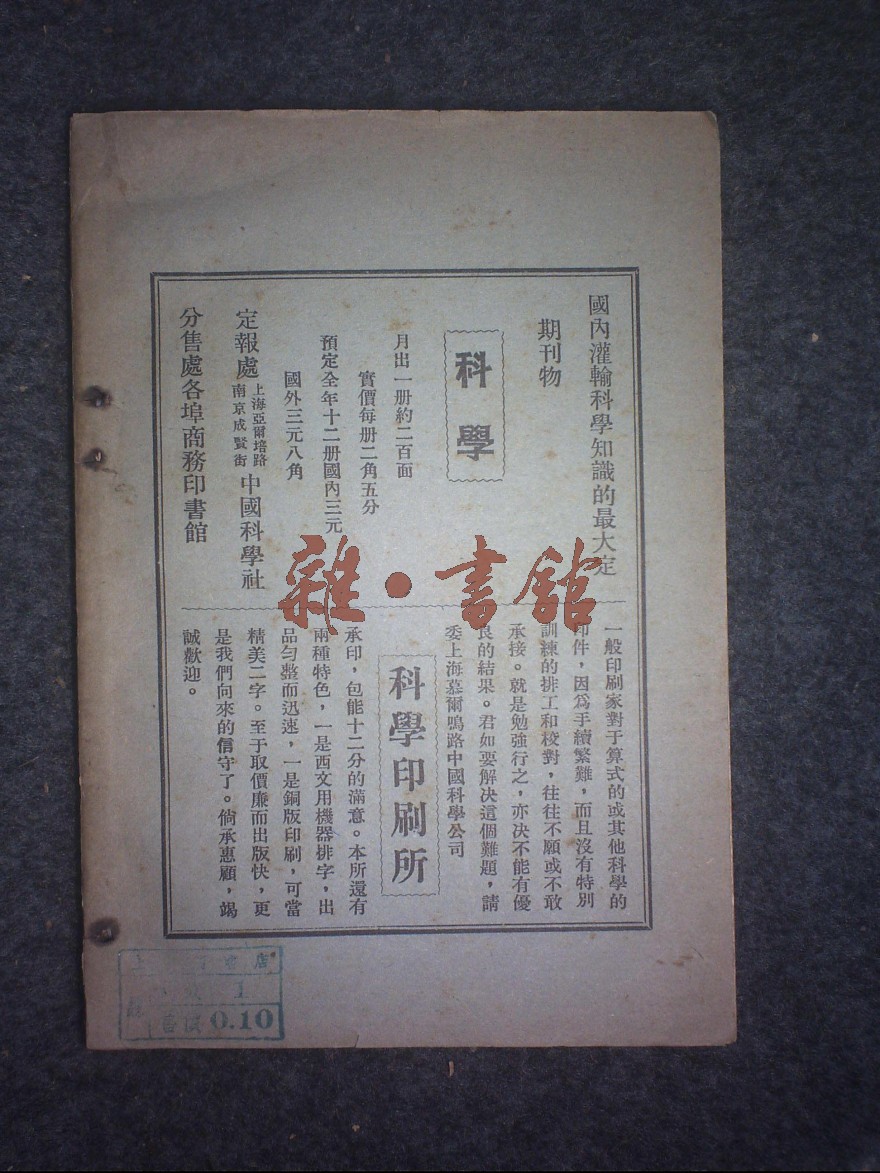 國內灌輸科學知識的最大定
期刊物
科學
月出一册約二百面
實價每册二角五分
預定全年十二册國內三元
國外三元八角
定報處 上海亞爾培路 南京成賢街 中國科學社
分售處各埠商務印書館
一般印刷家對于算式的或其他科學的
印件，因爲手續繁難，而且沒有特別
訓練的排工和校對，往往不願或不敢
承接。就是勉強行之，亦决不能有優
良的結果。君如要解決這個難題，請
委上海慕爾鳴路中國科學公司
科學印刷所
承印，包能十二分的滿意。本所還有
兩種特色，一是西文用機器排字，出
品勻整而迅速，一是銅版印刷，可當
精美二字。至于取價廉而出版快，更
是我們向來的信守了。倘承惠顧，竭
誠歡迎。
雜·書館
店
0.10